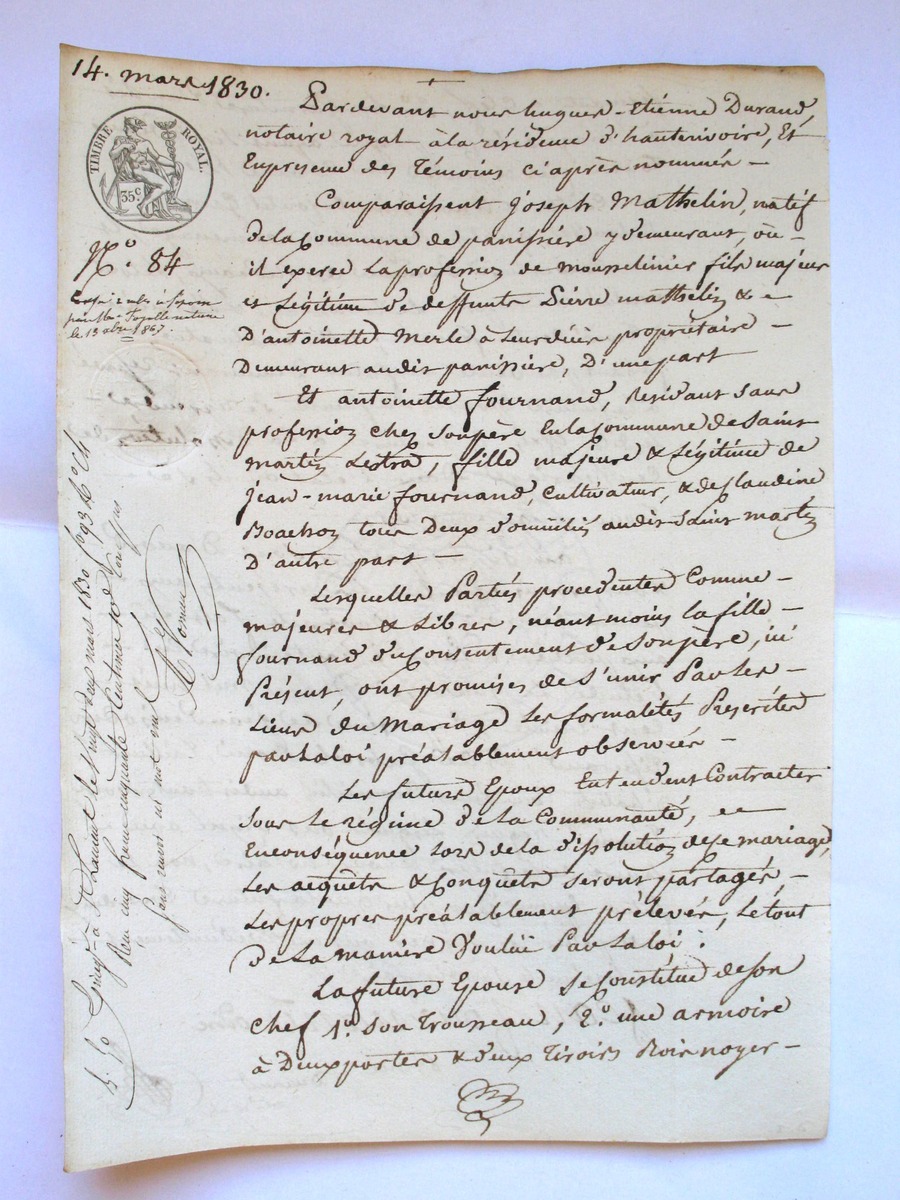 14. mars 1830.
TIMBRE ROYAL.
35c
N.o 84
le 13 xbre 1867.
Pardevant nous hugues-Etienne Durand,
notaire royal à la résidence d'hauterivoire, Et
Enpresence des Témoins ci après nommés -
Comparaissent joseph Mathelin, natif
de la Commune de panissière y demeurant, où -
il exerce la profession de mousselinier fils majeur
et Légitime de deffunts Pierre mathelin & e
D'antoinette Merle à Leurdécès propriétaire -
Demeurant audit panissière, D'une part
Et antoinette fournand, Résidant sans
profession chez son père En la Commune de Saint
martin Lestra, fille majeure & Légitime de
jean-marie fournand, Cultivateur, & de Claudine
tous Deux domiciliés audit Saint martin
D'autre part -
Lesquelles Parties procédentes Comme -
majeures & Libres, néant moins la fille -
fournand du Consentement de son père, ici
Présent, ont promises de s'unir Par les -
Liens du Mariage Les formalités Prescrites
par la loi préalablement observées -
Les future Epoux Entendent Contracter
sous le régime de la Communauté, et
En conséquence Lors de la dissolution de ce mariage,
Les acquêts & Conquêts seront partagés -
Les propres préalablement prélevés, Le tout
de la manière Voulüe Par la loi.
La future Epouse se Constitüe de son
Chef 1.o son Trousseau, 2.o une armoire
à Deux portes & deux Tiroirs Bois noyer -